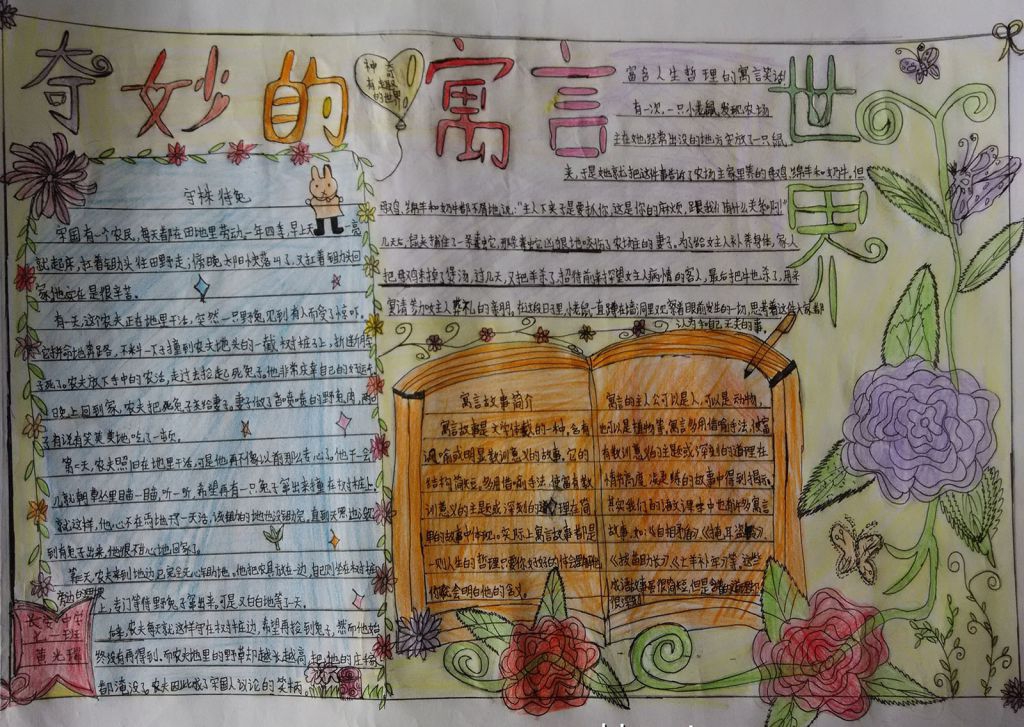 奇妙的寓言世界
神奇
有趣
的世界
富含人生哲理的寓言笑话
有一次,一只小老鼠发现农场
主在她经常出没的地方安放了一只鼠
夹,于是她就把这件事告诉了农场主家里养的母鸡、绵羊和奶牛,但
母鸡、绵羊和奶牛都不屑地说:"主人下夹子是要抓你,这是你的麻烦,跟我们有什么关系啊!"
把母鸡杀掉了煲汤,过几天,又把羊杀了,招待前来探望女主人病情的客人,最后把牛也杀了,用来
宴请参加女主人葬礼的亲朋。在这段日子里,小老鼠一直蹲在墙洞里观察着眼前发生的一切,思考着这些大家都
认为与自己无关的事。
守株待兔
宋国有一个农民,每天都在田地里劳动,一年四季,早上天一亮
就起床,扛着锄头往田野走;傍晚太阳快落山了,又扛着锄头回
家,他实在是很辛苦。
有一天,这个农夫正在地里干活,突然一只野兔见到有人而受了惊吓。
它拼命地奔跑,不料一下子撞到农夫地头的一截树桩子上,折断脖
子死了。农夫放下手中的农活,走过去捡起死兔子。他非常庆幸自己的好运气。
晚上回到家,农夫把死兔子交给妻子。妻子做了香喷喷的野兔肉,两口
子有说有笑美美地吃了一顿。
第二天,农夫照旧在地里干活,可是他再不像以前那么专心了。他干一会
儿就朝草丛里瞄一瞄,听一听,希望再有一只兔子窜出来撞在树桩上。
就这样,他心不在焉地干了一天活,该锄的地也没锄完。直到天黑也没见
到有兔子出来,他很不甘心地回家了。
第三天,农夫来到地边,已完全无心锄地。他把农具放在一边,自己则坐在树桩
上,专门等待野兔子窜出来。可是又白白地等了一天。
后来,农夫每天就这样守在树桩边,希望再捡到兔子,然而他始
终没有再得到。而农夫地里的野草却越长越高,把他的庄稼
都淹没了。农夫因此成了宋国人议论的笑柄。
一班
黄光瑞
寓言故事简介
寓言故事是文学体裁的一种。含有
讽喻或明显教训意义的故事。它的
结构简短,多用借喻手法,使富有教
训意义的主题或深刻的道理在简
短的故事中体现。实际上寓言故事都是
你就会明白他的含义。
寓言的主人公可以是人,可以是动物,
也可以是植物等,寓言多用借喻手法,使富
有教训意义的主题或深刻的道理在
其实我们的语文课本中也有许多寓言
故事,如:《自相矛盾》、《掩耳盗铃》、
《拔苗助长》、《亡羊补牢》等,这些